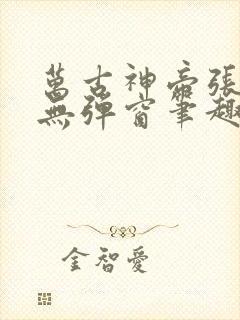 萬古神帝張
無彈窗筆趣
金智愛